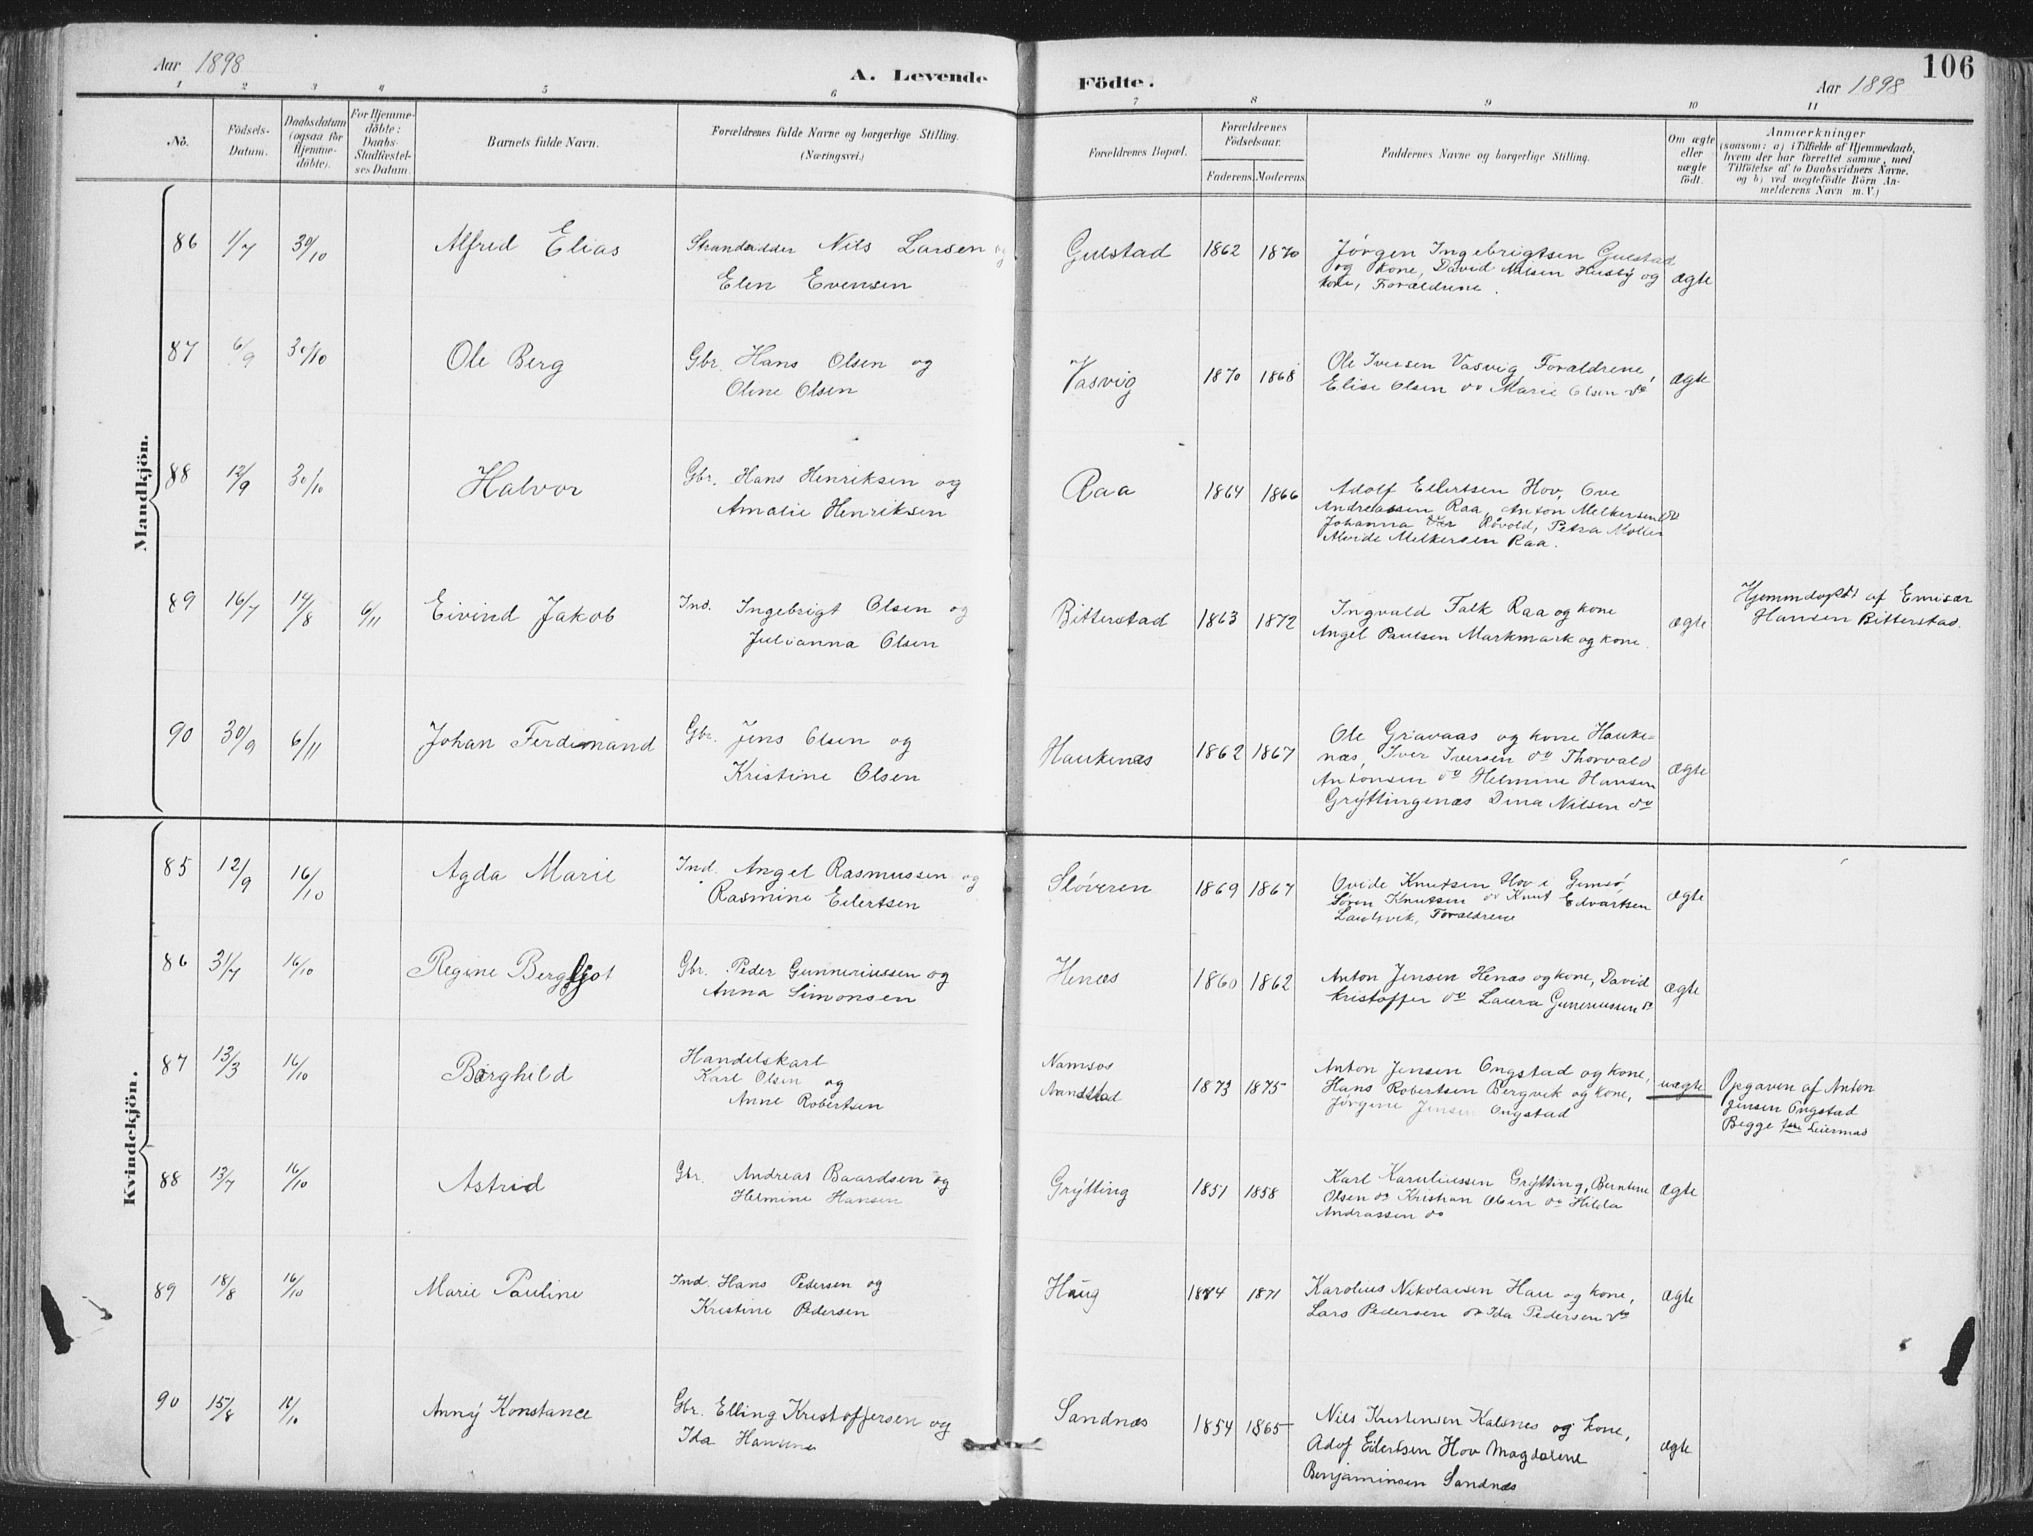 Aar 1898
A. Levende
Födte.
Aar 1898
106
1 2 3 4 5 6 7 8 9 10 11
No.
Födsels-
Datum.
Daabsdatum
(ogsaa for
Hjemme-
döbte).
For Hjemme-
döbte:
Daabs-
Stadfæstel-
ses Datum.
Barnets fulde Navn.
Forældrenes fulde Navne og borgerlige Stilling.
(Næringsvei.)
Forældrenes Bopæl.
Forældrenes
Födselsaar.
Faderens. Moderens.
Faddernes Navne og borgerlige Stilling.
Om ægte
eller
uægte
födt.
Anmærkninger
(saasom: a) i Tilfælde af Hjemmedaab,
hvem der har forrettet samme, med
Tilföielse af to Daabsvidners Navne,
og b) ved uægtefödte Börn An-
melderens Navn m. V.)
Mandkjön.
86 1/7 30/10 Alfred Elias
Strandsidder Nils Larsen og
Elen Evensen
Gulstad 1862 1870
Jørgen Ingebrigtsen Gulstad
og kone, David Nilsen Husby og
kone, Forældrene.
ægte
87 6/9 30/10 Ole Berg
Gbr. Hans Olsen og
Oline Olsen
Vasvig 1870 1868
Ole Iversen Vasvig, Forældrene,
Elise Olsen do Marie Olsen do
ægte
88 12/9 30/10 Halvor
Gbr. Hans Henriksen og
Amalie Henriksen
Raa 1864 1866
Adolf Eilertsen Hov, Ove
Andreassen Raa, Anton Melkersen do
Johanna Røvold, Petra Møller
Alvide Melkersen Raa.
89 16/7 14/8 6/11 Eivind Jakob
Ind. Ingebrigt Olsen og
Julianna Olsen
Bitterstad 1863 1872
Ingvald Falk Raa og kone
Angel Paulsen Markmark og kone.
ægte
Hjemmdøpt af Emisær
Hansen Bitterstad.
90 30/9 6/11 Johan Ferdinand
Gbr. Jens Olsen og
Kristine Olsen
Haukenæs 1862 1867
Ole Gravaas og kone Hauke-
næs, Iver Iversen do Thorvald
Antonsen do Helmine Hansen
Grýttingenæs Dina Nilsen do
ægte
Kvindekjön.
85 12/9 16/10 Agda Marie
Ind. Angel Rasmussen og
Rasmine Eilertsen
Støveren 1869 1867
Ovide Knutsen Hov i Gimsø,
Søren Knutsen do Knut Edvartsen
Forældrene
ægte
86 31/7 16/10 Regine Bergljot
Gbr. Peder Gunneriussen og
Anna Simonsen
Henæs 1860 1862
Anton Jensen Henæs og kone, David
Kristoffer do Laura Guneriussen do
ægte
87 13/3 16/10 Borghild
Handelskarl
Karl Olsen og
Anne Robertsen
Namsos
1873 1875
Anton Jensen Ongstad og kone,
Hans Robertsen Bergvik og kone,
Jørgine Jensen Ongstad
uægte
Opgaven af Anton
Jensen Ongstad
Begge 1ste Leiermaal
88 13/7 16/10 Astrid
Gbr. Andreas Baardsen og
Helmine Hansen
Grýtting 1851 1858
Karl Karuliussen Grýtting, Berntine
Olsen do Kristian Olsen do Hilda
Andrassen do
ægte
89 18/8 16/10 Marie Pauline
Ind. Hans Pedersen og
Kristine Pedersen
Haug 1874 1871
Karolius Nikolaisen Hau og kone,
Lars Pedersen do Ida Pedersen do
ægte
90 15/8 16/10 Anný Konstance
Gbr. Elling Kristoffersen og
Ida Hansine
Sandnæs 1854 1865
Nils Kristensen Kalsnes og kone,
Adof Eilertsen Hov Magdalene
Benjaminsen Sandnæs
ægte